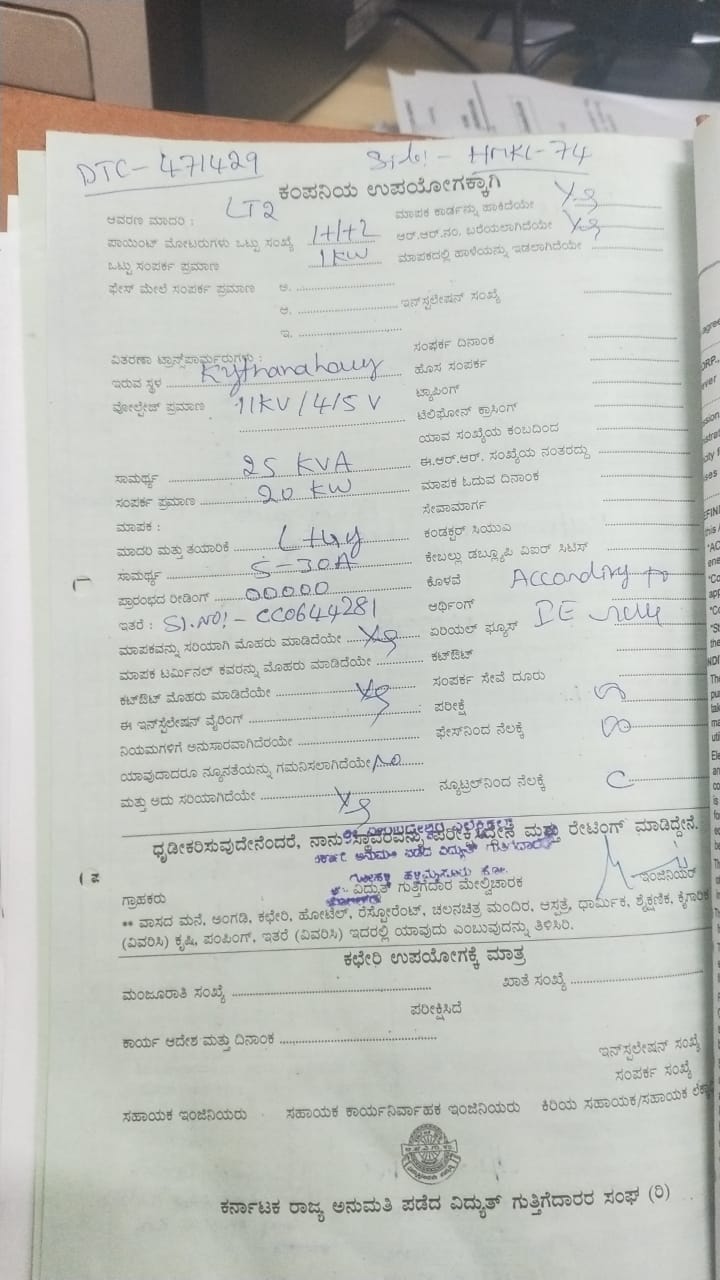 DTC - 471429
HMKL-74
ಕಂಪನಿಯ ಉಪಯೋಗಕ್ಕಾಗಿ
ಆವರಣ ಮಾದರಿ : LT2
ಮಾಪಕ ಕಾರ್ಡನ್ನು ಹಾಕಿದೆಯೇ Yes
ಪಾಯಿಂಟ್ ಮೋಟರುಗಳು ಒಟ್ಟು ಸಂಖ್ಯೆ 1+1+2
ಆರ್.ಆರ್.ನಂ. ಬರೆಯಲಾಗಿದೆಯೇ Yes
ಒಟ್ಟು ಸಂಪರ್ಕ ಪ್ರಮಾಣ 1KW
ಮಾಪಕದಲ್ಲಿ ಹಾಳೆಯನ್ನು ಇಡಲಾಗಿದೆಯೇ
ಫೇಸ್ ಮೇಲೆ ಸಂಪರ್ಕ ಪ್ರಮಾಣ ಅ.
ಆ. ಇನ್‌ಸ್ಟಲೇಷನ್ ಸಂಖ್ಯೆ
ಇ.
ವಿತರಣಾ ಟ್ರಾನ್ಸ್‌ಪಾರ್ಮರುಗಳು :
ಸಂಪರ್ಕ ದಿನಾಂಕ
ಇರುವ ಸ್ಥಳ
ಹೊಸ ಸಂಪರ್ಕ
ವೋಲ್ಟೇಜ್ ಪ್ರಮಾಣ 11KV/415V
ಟ್ಯಾಪಿಂಗ್
ಟೆಲಿಫೋನ್ ಕ್ರಾಸಿಂಗ್
ಯಾವ ಸಂಖ್ಯೆಯ ಕಂಬದಿಂದ
ಸಾಮರ್ಥ್ಯ 25 KVA
ಈ.ಆರ್.ಆರ್. ಸಂಖ್ಯೆಯ ನಂತರದ್ದು
ಸಂಪರ್ಕ ಪ್ರಮಾಣ 20 KW
ಮಾಪಕ ಓದುವ ದಿನಾಂಕ
ಮಾಪಕ :
ಸೇವಾಮಾರ್ಗ
ಮಾದರಿ ಮತ್ತು ತಯಾರಿಕೆ
ಕಂಡಕ್ಟರ್ ಸಿಯುಎ
ಸಾಮರ್ಥ್ಯ 5-30A
ಕೇಬಲ್ಲು ಡಬ್ಲ್ಯೂಪಿ ವಿಐರ್ ಸಿಟಿಸ್
ಪ್ರಾರಂಭದ ರೀಡಿಂಗ್ 00000
ಕೊಳವೆ According to
ಇತರೆ : Sl.NO! - CC0644281
ಆರ್ಥಿಂಗ್
ಮಾಪಕವನ್ನು ಸರಿಯಾಗಿ ಮೊಹರು ಮಾಡಿದೆಯೇ Yes
ಏರಿಯಲ್ ಫ್ಯೂಸ್ IE rule
ಮಾಪಕ ಟರ್ಮಿನಲ್ ಕವರನ್ನು ಮೊಹರು ಮಾಡಿದೆಯೇ
ಕಟ್‌ಔಟ್
ಕಟ್‌ಔಟ್ ಮೊಹರು ಮಾಡಿದೆಯೇ Yes
ಸಂಪರ್ಕ ಸೇವೆ ದೂರು
ಈ ಇನ್‌ಸ್ಟಲೇಷನ್ ವೈರಿಂಗ್
ಪರೀಕ್ಷೆ
ನಿಯಮಗಳಿಗೆ ಅನುಸಾರವಾಗಿದೆರಯೇ
ಫೇಸ್‌ನಿಂದ ನೆಲಕ್ಕೆ
ಯಾವುದಾದರೂ ನ್ಯೂನತೆಯನ್ನು ಗಮನಿಸಲಾಗಿದೆಯೇ No
ಮತ್ತು ಅದು ಸರಿಯಾಗಿದೆಯೇ Yes
ನ್ಯೂಟ್ರಲ್‌ನಿಂದ ನೆಲಕ್ಕೆ
ಧೃಡೀಕರಿಸುವುದೇನೆಂದರೆ, ನಾನು ಸ್ಥಾವರವನ್ನು ಪರೀಕ್ಷಿಸಿದ್ದೇನೆ ಮತ್ತು ರೇಟಿಂಗ್ ಮಾಡಿದ್ದೇನೆ.
ಗ್ರಾಹಕರು
ವಿದ್ಯುತ್ ಗುತ್ತಿಗೆದಾರ ಮೇಲ್ವಿಚಾರಕ
ಇಂಜಿನಿಯರ್
** ವಾಸದ ಮನೆ, ಅಂಗಡಿ, ಕಛೇರಿ, ಹೋಟೆಲ್, ರೆಸ್ಟೋರೆಂಟ್, ಚಲನಚಿತ್ರ ಮಂದಿರ, ಆಸ್ಪತ್ರೆ, ಧಾರ್ಮಿಕ, ಶೈಕ್ಷಣಿಕ, ಕೈಗಾರಿಕೆ
(ವಿವರಿಸಿ) ಕೃಷಿ, ಪಂಪಿಂಗ್, ಇತರೆ (ವಿವರಿಸಿ) ಇದರಲ್ಲಿ ಯಾವುದು ಎಂಬುವುದನ್ನು ತಿಳಿಸಿರಿ.
ಕಛೇರಿ ಉಪಯೋಗಕ್ಕೆ ಮಾತ್ರ
ಮಂಜೂರಾತಿ ಸಂಖ್ಯೆ
ಖಾತೆ ಸಂಖ್ಯೆ
ಪರೀಕ್ಷಿಸಿದೆ
ಕಾರ್ಯ ಆದೇಶ ಮತ್ತು ದಿನಾಂಕ
ಇನ್‌ಸ್ಟಲೇಷನ್ ಸಂಖ್ಯೆ
ಸಂಪರ್ಕ ಸಂಖ್ಯೆ
ಸಹಾಯಕ ಇಂಜಿನಿಯರು ಸಹಾಯಕ ಕಾರ್ಯನಿರ್ವಾಹಕ ಇಂಜಿನಿಯರು ಕಿರಿಯ ಸಹಾಯಕ/ಸಹಾಯಕ
ಕರ್ನಾಟಕ ರಾಜ್ಯ ಅನುಮತಿ ಪಡೆದ ವಿದ್ಯುತ್ ಗುತ್ತಿಗೆದಾರರ ಸಂಘ (ರಿ)